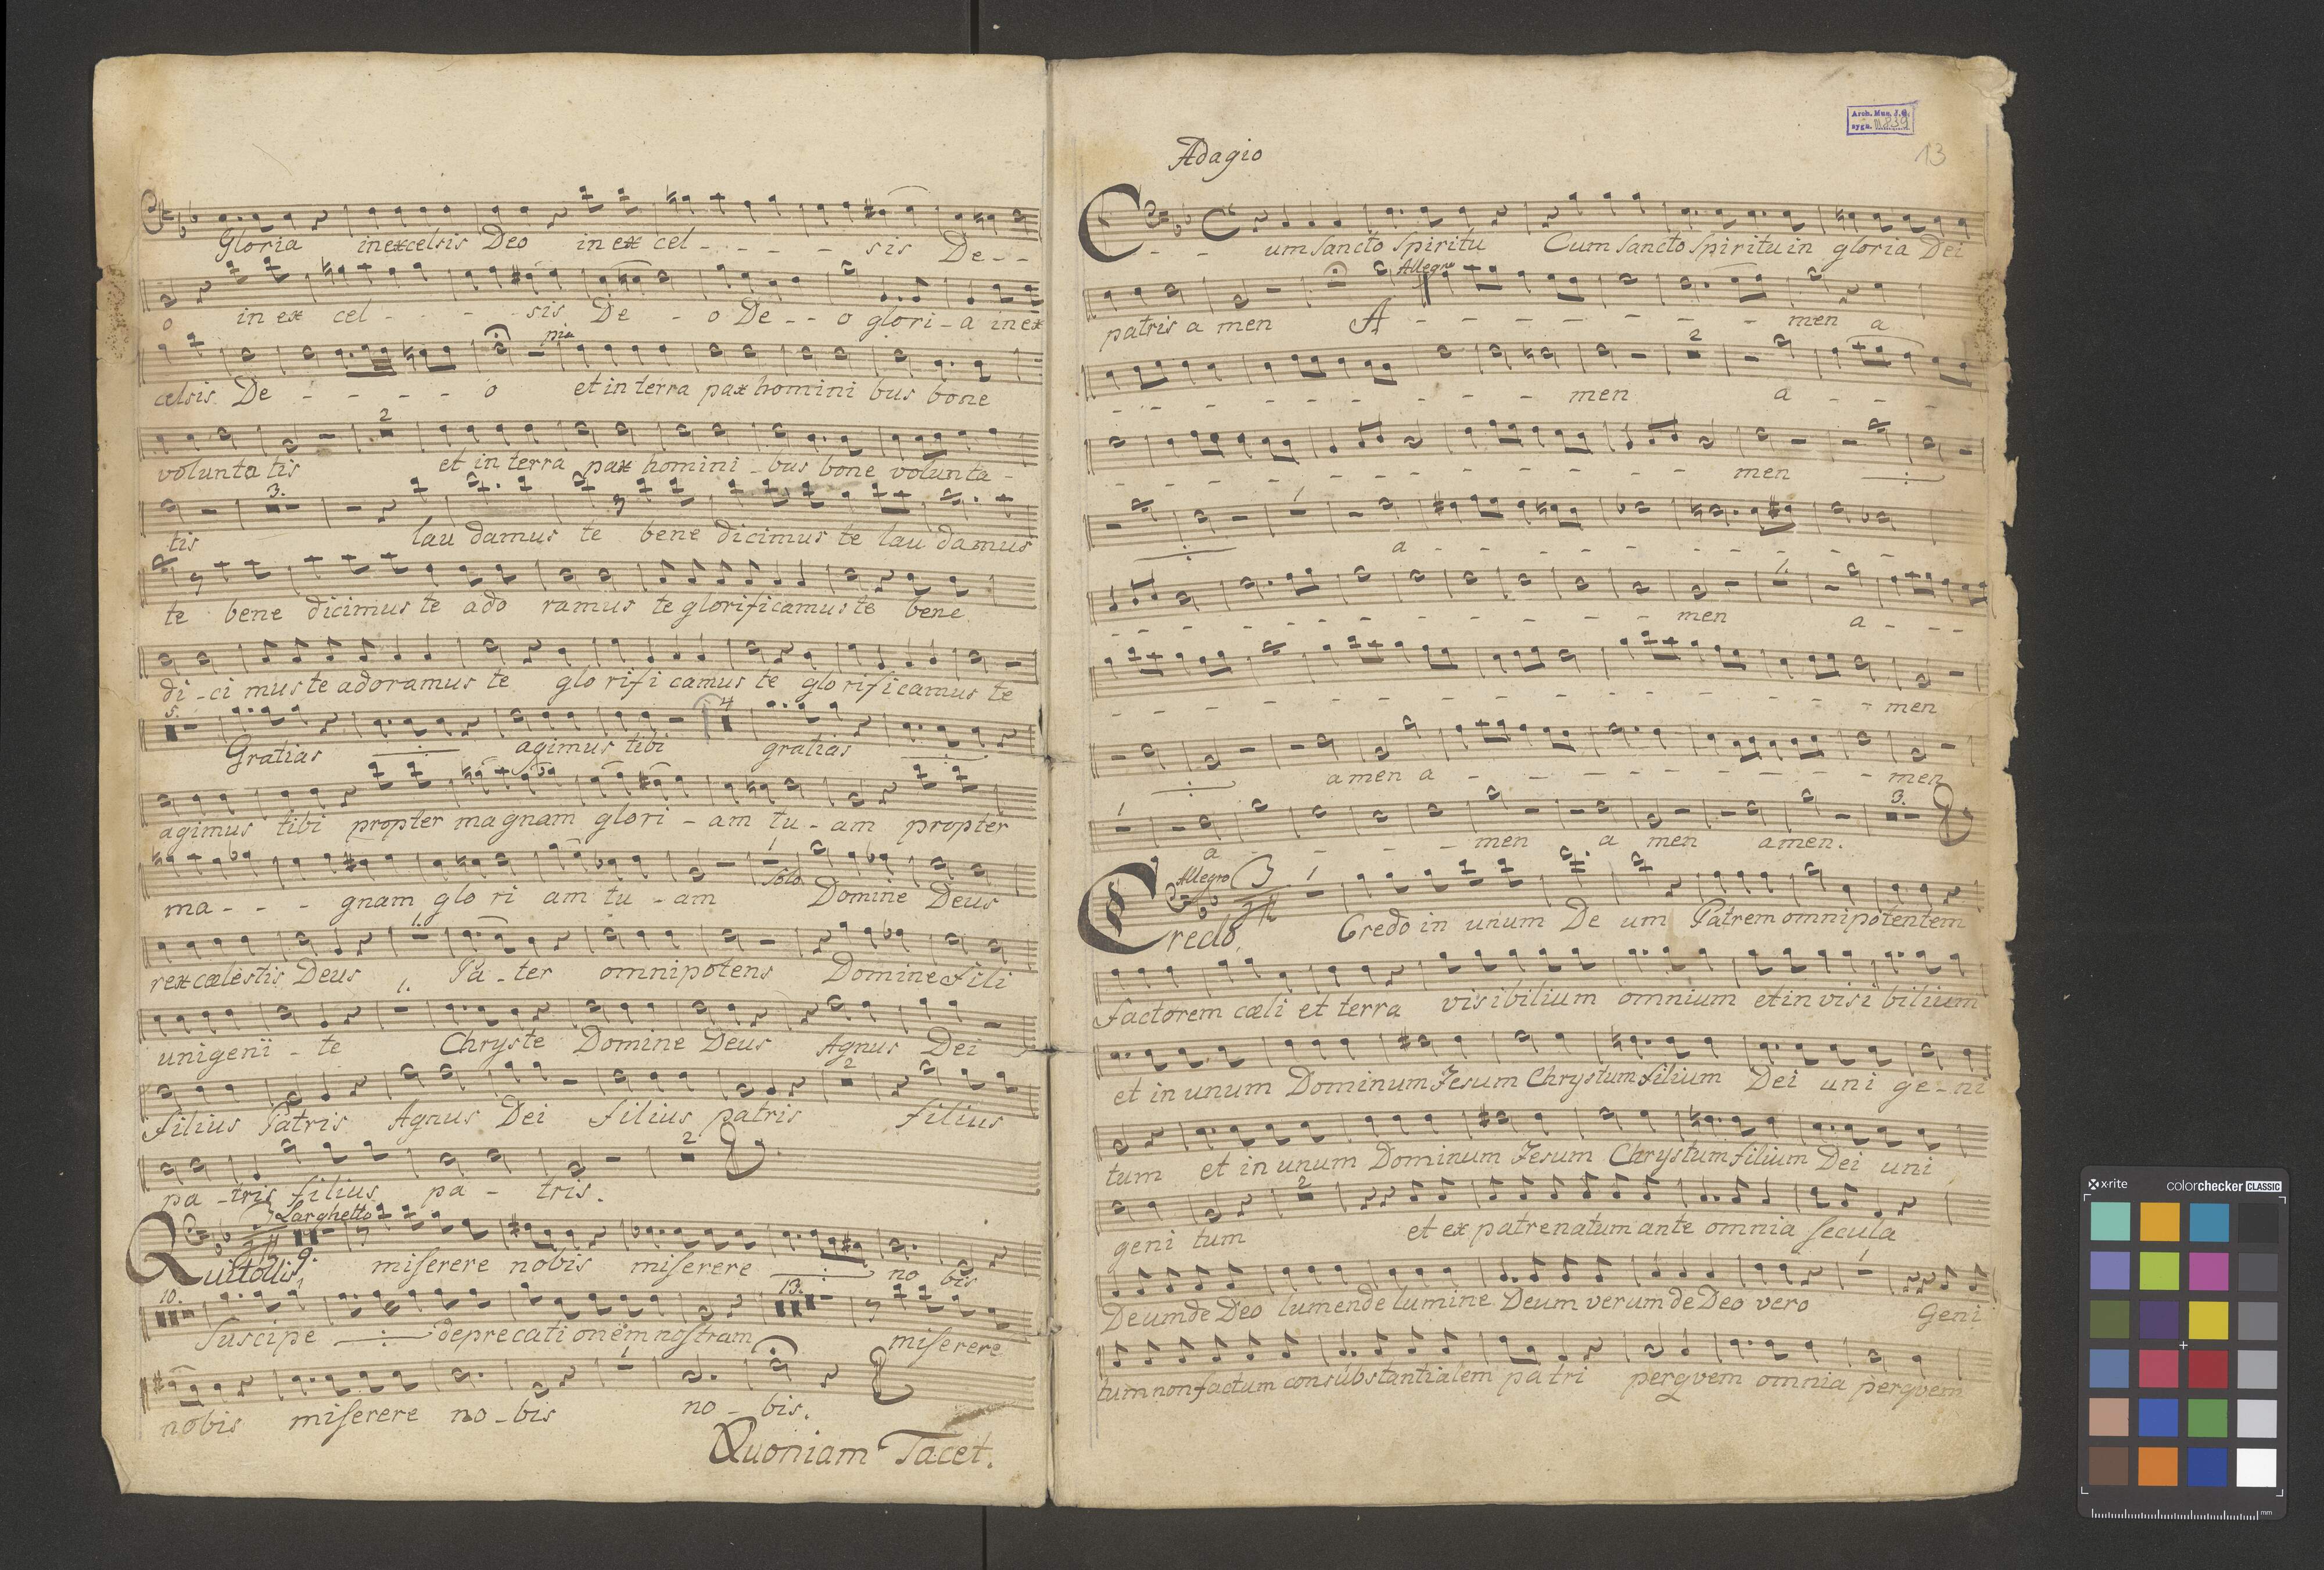 Gloria in excelsis Deo in ex cel - - - - sis De - -
o in ex cel - - - - sis De - o De - - o glori - a in ex
pia
celsis De - - - - o et in terra pax homini bus bone
2
volunta tis et in terra pax homini - bus bone volunta -
3.
tis lau damus te bene dicimus te lau damus
te bene dicimus te ado ramus te glorificamus te bene
di - ci mus te adoramus te glo rifi camus te glo rificamus te
5. 4
Gratias agimus tibi gratias
agimus tibi propter magnam glori - am tu - am propter
1
Solo
ma - - - gnam glo ri am tu - am Domine Deus
1.
rex cœlestis Deus Pa - ter omnipotens Domine Fili
1.
unigenii - te Chryste Domine Deus Agnus Dei
2
filius Patris Agnus Dei filius patris filius
2
pa - tris filius pa - tris.
Larghetto
9.
Qui tollis, miserere nobis miserere no bis
10. 13.
Suscipe deprecationem nostram miserere
1
nobis miserere no - bis no - bis.
Quoniam Tacet.
Arch. Mus. J. G.
sygn.
13
Adagio
C - - um sancto Spiritu Cum sancto Spiritu in gloria Dei
Allegro
patris a men A - - - - - - - men a
2
- - - - - - - - - men a - - - -
- - - - - - - - men
1
a - - - - - - -
1.
- - - - - - - - - men a - - -
- - - - - - - - - - - men
amen a - - - - - - - - men
1 3.
a - - - - men a men amen.
Allegro 3 1
Credo, Credo in unum De um Patrem omnipotentem
factorem cœli et terra visibilium omnium et in visi bilium
et in unum Dominum Jesum Chrystum filium Dei uni ge - ni
tum et in unum Dominum Jesum Chrystum filium Dei uni
2
geni tum et ex patre natum ante omnia secula
1
Deum de Deo lumen de lumine Deum verum de Deo vero Geni
tum non factum consubstantialem pa tri per qvem omnia per qvem
x-rite colorchecker CLASSIC
mm